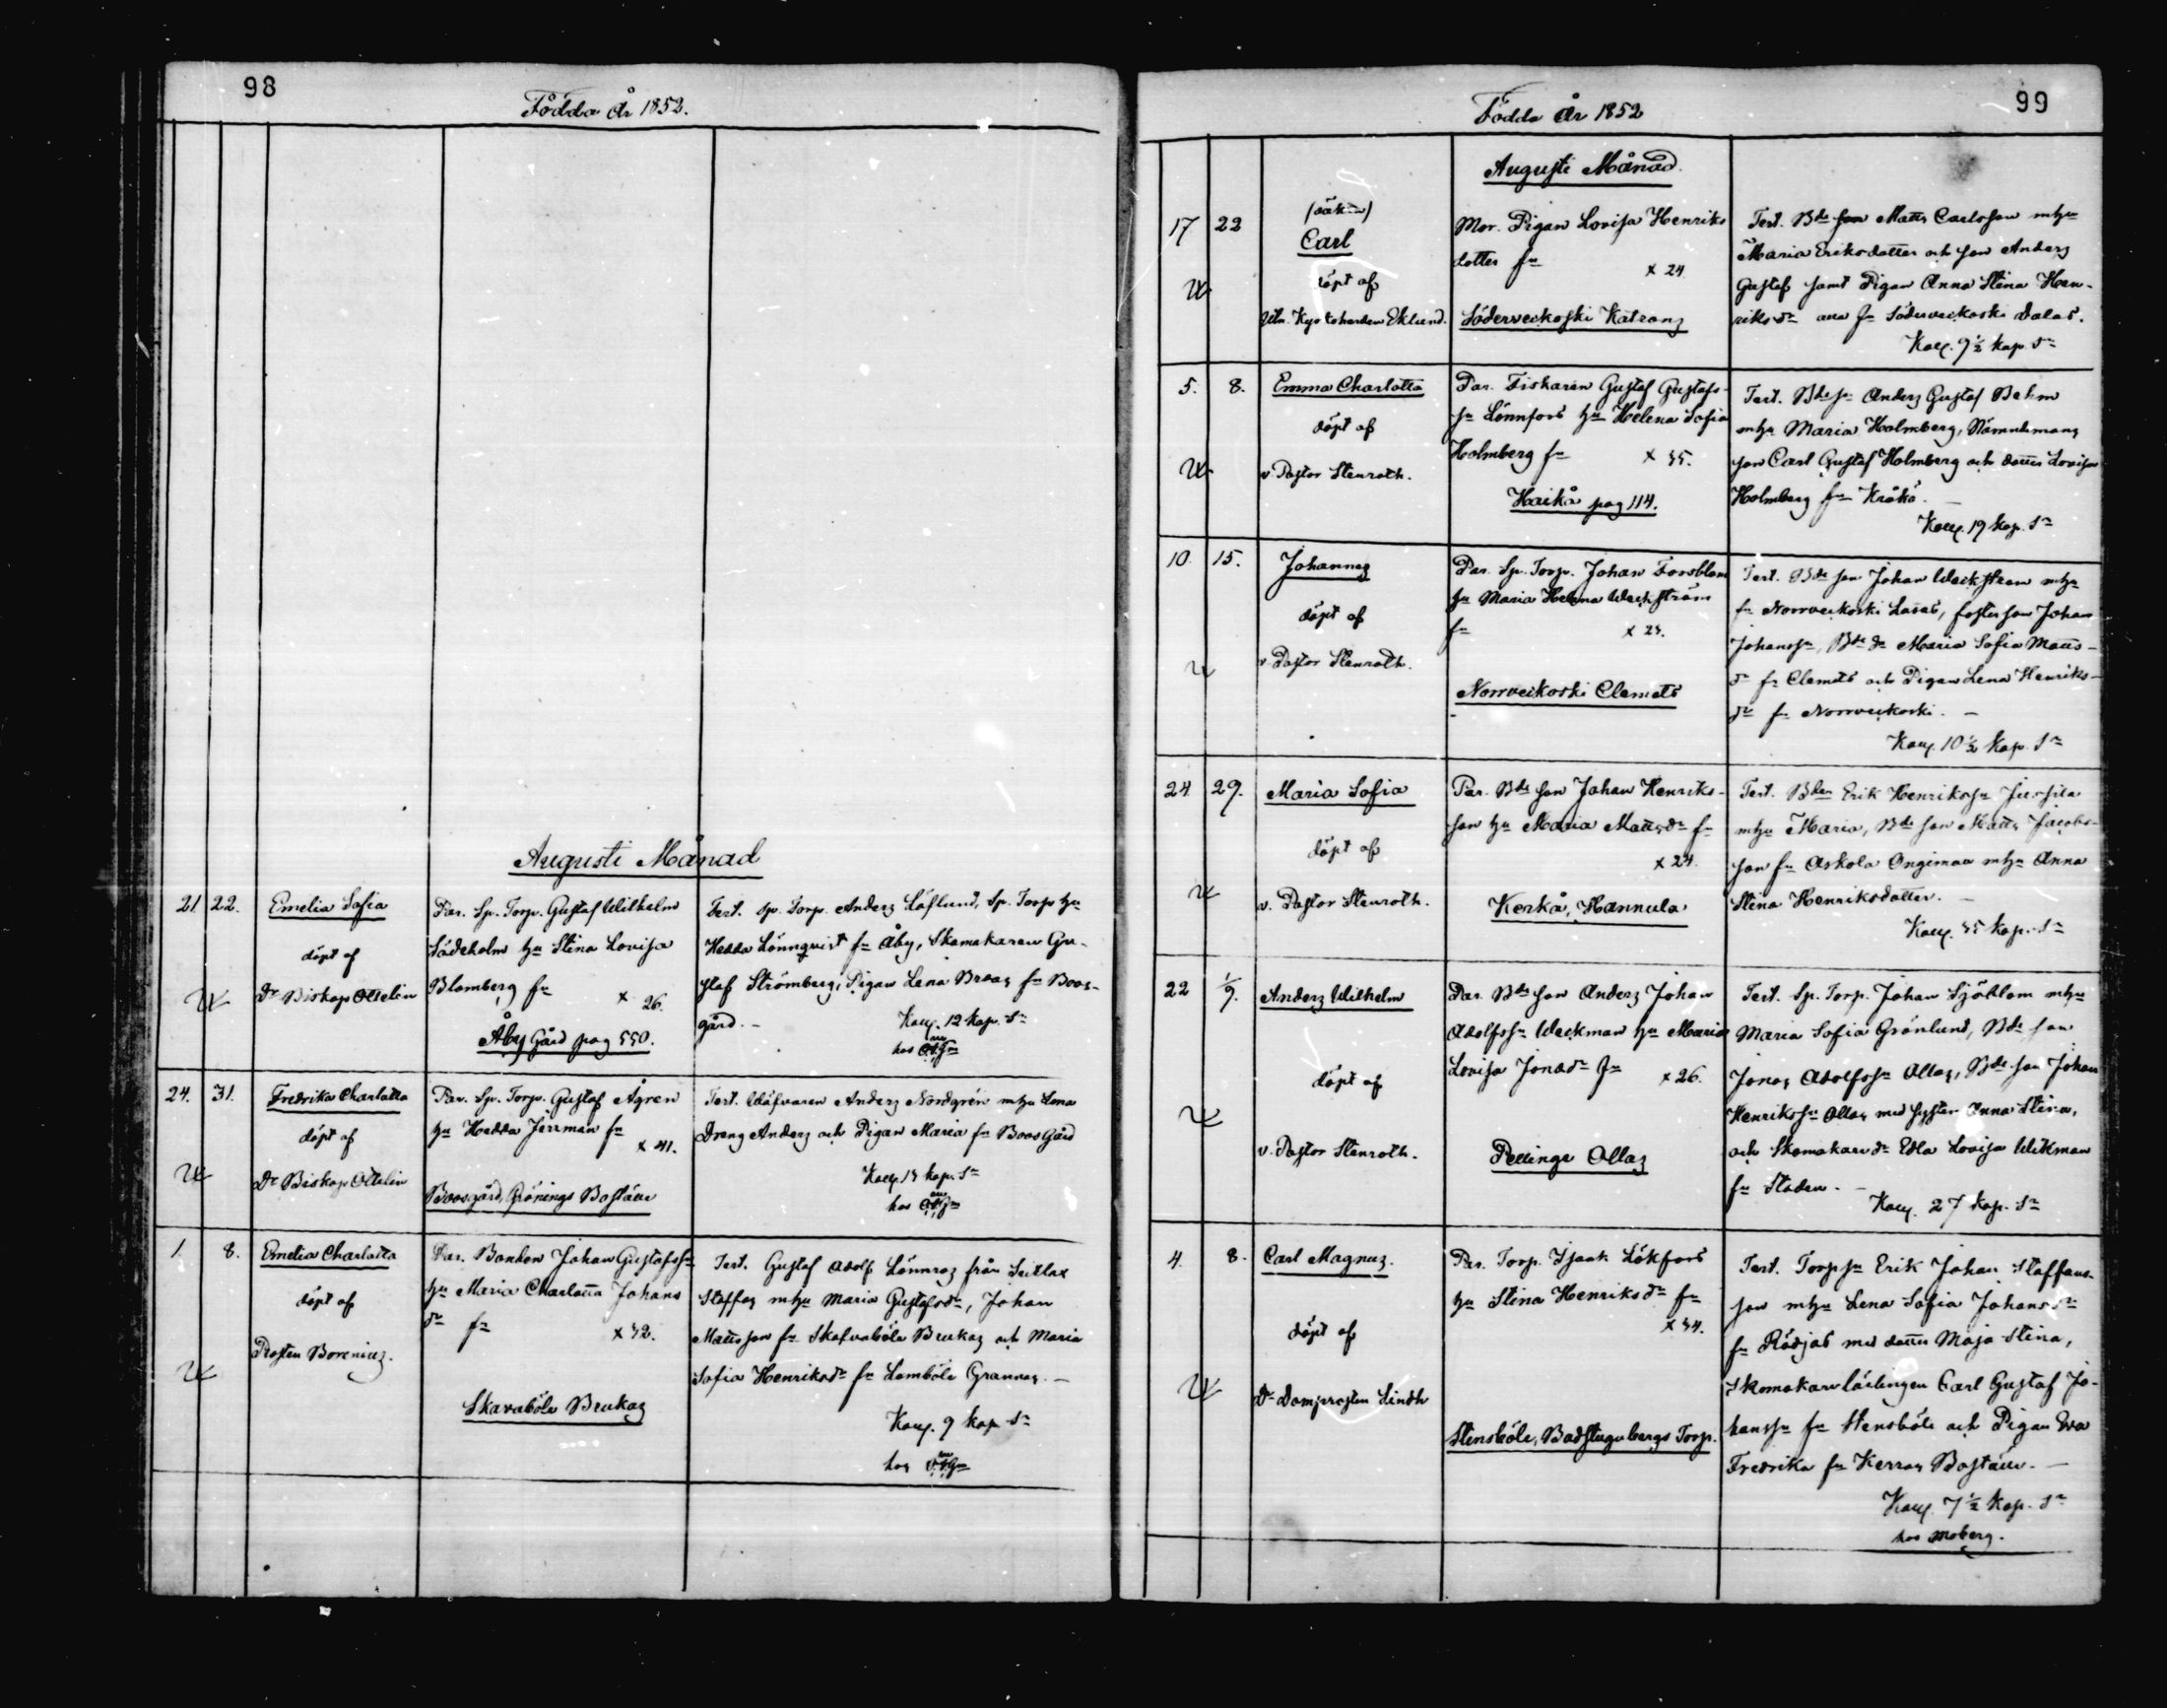 98
Födda År 1852.
Augusti Månad
21 22. Emelia Sofia
döpt af
Dr Biskop Ottelin
Par. Sp. Torp. Gustaf Wilhelm
Södeholm hu Stina Lovisa
Blomberg fn
x 26.
Åby Gård pag 550.
Test. Sp. Torp. Anders Löflund, Sp. Torp hu
Hedda Lönnqvist fn Åby, Skomakaren Gu-
staf Strömberg, Pigan Lena Braas fn Boos-
gård. –
Koll. 12 kop. Sr
hos
24. 31. Fredrika Charlotta
döpt af
Dr Biskop Ottelin
Par. Sp. Torp. Gustaf Ågren
hu Hedda Jerrman fn
x 41.
Boosgård, Grönings Boställe
Test. Wäfvaren Anders Nordgrén mhu Lena
Dreng Anders och Pigan Maria fn Boos Gård
Koll. 15 kop. Sr
hos
1. 8. Emelia Charlotta
döpt af
Prosten Borenius.
Par. Bonden Johan Gustafssn
hu Maria Charlotta Johans
dr fn
x 32.
Skavaböle Brukas
Test. Gustaf Adolf Lönnros från Seitlax
Staffas mhu Maria Gustafsdr, Johan
Matsson fn Skafvaböle Brukas och Maria
Sofia Henriksdr fn Lomböle Grannas. –
Koll. 9 kop Sr
hos
99
Födda År 1852
Augusti Månad.
17 22
(oäkta)
Carl
döpt af
Kyrkoherden Eklund.
Mor. Pigan Lovisa Henriks
dotter fn
x 24.
Söderveckoski Katrons
Test. Bde son Matts Carlsson mhu
Maria Eriksdotter och son Anders
Gustaf samt Pigan Anna Stina Hen-
riksdr alla fn Söderveckoski Dalas.
Koll. 9½ kop. Sr
5. 8. Emma Charlotta
döpt af
v. Pastor Stenroth.
Par. Fiskaren Gustaf Gustafs-
sn Lönnfors hu Helena Sofia
Holmberg fn x 35.
Haikå pag 114.
Test. Bdesn Anders Gustaf Behm
mhu Maria Holmberg, Nämndemans
son Carl Gustaf Holmberg och dotter Lovisa
Holmberg fn Kråkö. –
Koll. 19 kop. Sr
10. 15. Johannes
döpt af
v. Pastor Stenroth.
Par. Sp. Torp. Johan Forsblom
hu Maria Helena Weckström
fn x 23.
Norrveckoski Clemets
Test. Bde son Johan Weckström mhu
fn Norrveckoski Lassas, fosterson Johan
Johanssn, Bde dr Maria Sofia Matts-
dr fn Clemets och Pigan Lena Henriks-
dr fn Norrveckoski. –
Koll. 10½ kop. Sr
24. 29. Maria Sofia
döpt af
v. Pastor Stenroth.
Par. Bde son Johan Henriks-
son hu Maria Mattsdr fn
x 24.
Kerkå, Hannula
Test. Bden Erik Henrikssn Jussila
mhu Maria, Bde son Matts Jacobs-
son fn Askola Ongimaa mhu Anna
Stina Henriksdotter. –
Koll. 35 kop. Sr
22 1/9. Anders Wilhelm
döpt af
v. Pastor Stenroth.
Par. Bde son Anders Johan
Adolfssn Weckman hu Maria
Lovisa Jonasdr fn x 26.
Pellinge Ollas
Test. Sp. Torp. Johan Sjöblom mhu
Maria Sofia Grönlund, Bde son
Jonas Adolfssn Ollas, Bde son Johan
Henrikssn Ollas med syster Anna Stina,
och Skomakaredr Edla Lovisa Wikman
fn Staden. –
Koll. 27 kop. Sr
4. 8. Carl Magnus.
döpt af
Dr Domprosten Lindh
Par. Torp. Isaak Lökfors
hu Stina Henriksdr fn
x 34.
Stensböle, Badstugubergs Torp.
Test. Torpsn Erik Johan Staffans-
son mhu Lena Sofia Johansdr
fn Rödjas med dotter Maja Stina,
Skomakarelärlingen Carl Gustaf Jo-
hanssn fn Stensböle och Pigan Eva
Fredrika fn Kerras Boställe. –
Koll. 7½ kop. Sr
hos Moberg.